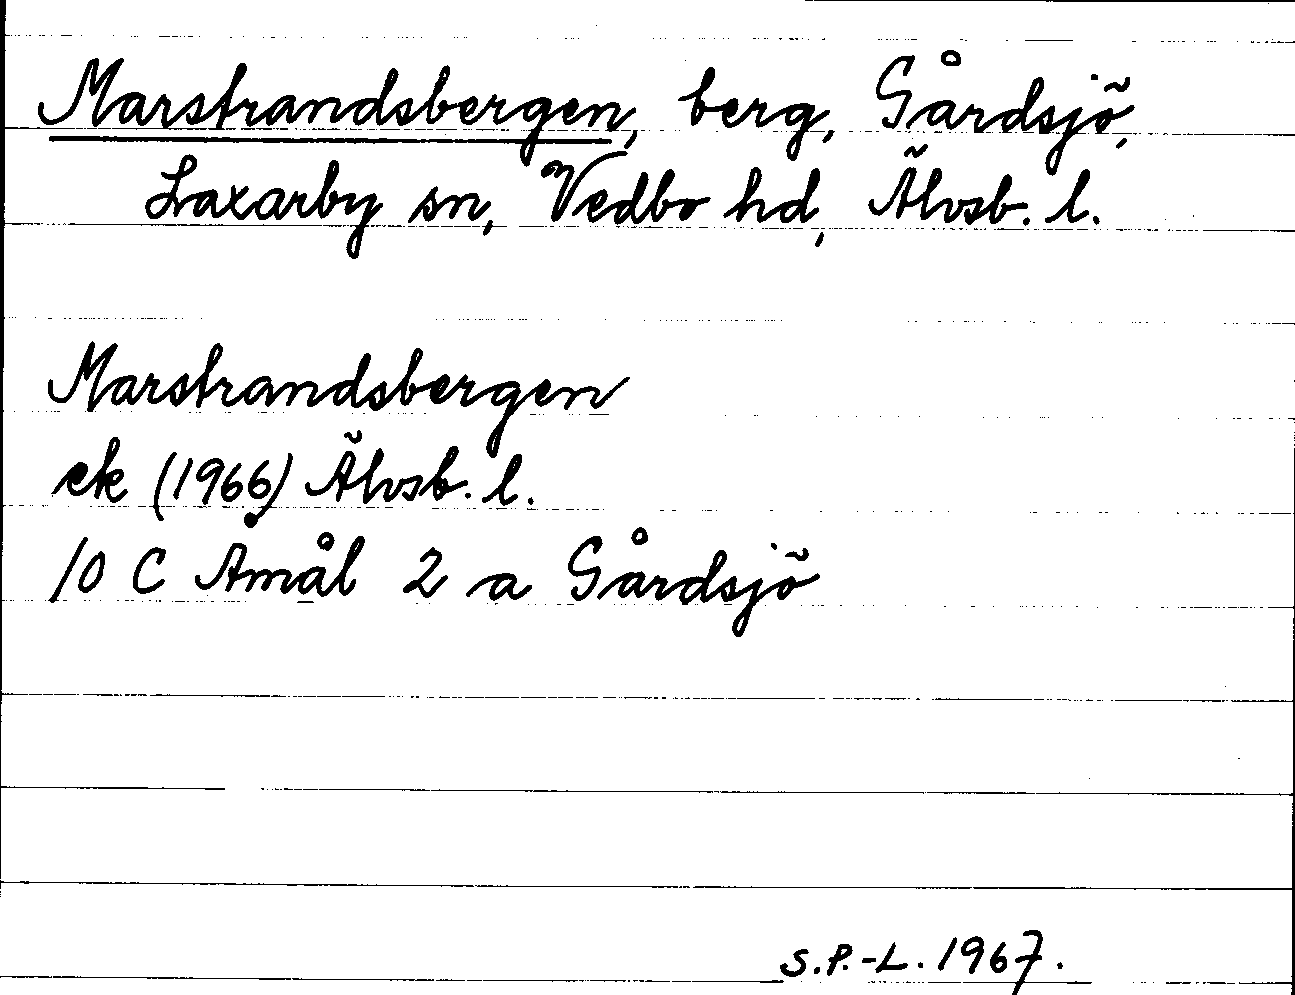 Marstrandsbergen, berg, Gårdsjö,
Laxarby sn, Vedbo hd, Älvsb. l.
Marstrandsbergen
ek (1966) Älvsb. l.
10 C Åmål 2 a Gårdsjö
S.P.-L. 1967.